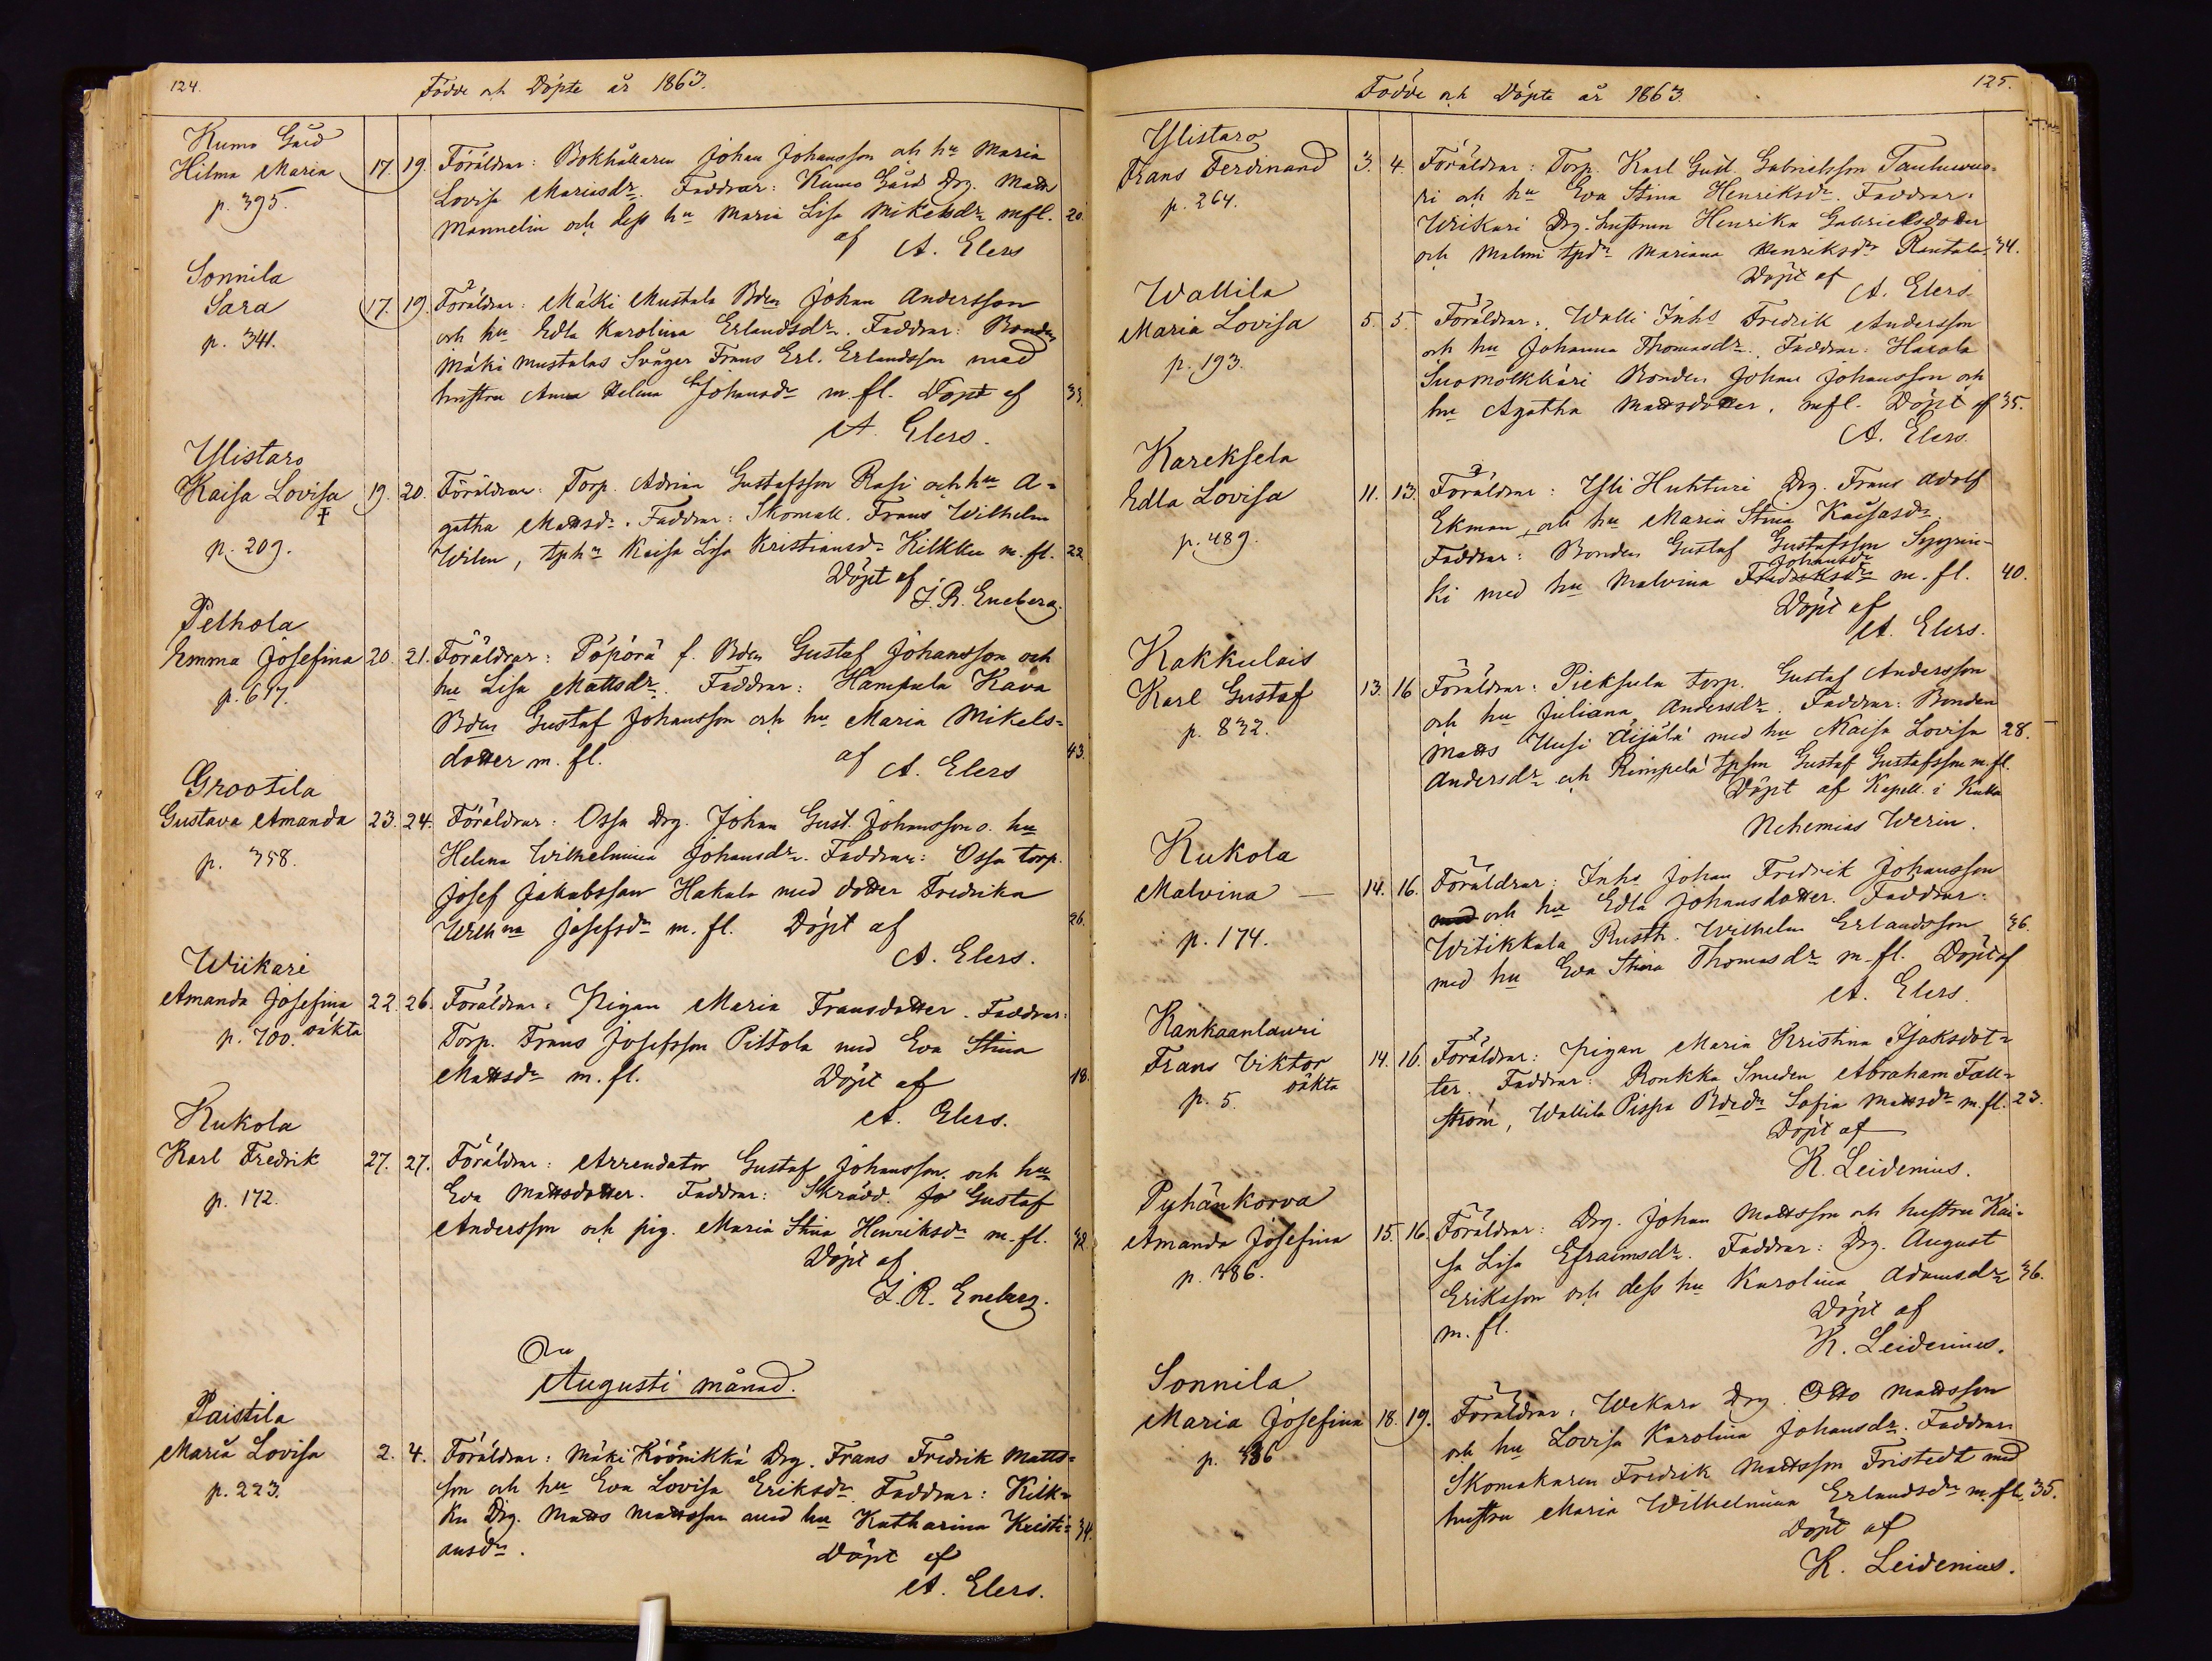 124.
Födde och Döpte år 1863.
Kumo Gård
Hilma Maria 17. 19. Föräldrar: Bokhållaren Johan Johansson och hu Maria
p. 395.
Lovisa Mariasdr. Faddrar: Kumo Gårds Drg. Matts
Mannelin och dess hu Maria Lisa Mikelsdr mfl. 20.
af A. Elers
Sonnila
Sara 17. 19. Föräldrar: Mäki Mustala Bden Johan Andersson
p. 341.
och hu Edla Karolina Erlandsdr. Faddrar: Bonden
Mäki Mustalas Svåger Frans Erl. Erlandsson med
hustru Anna Helena Johansdr m. fl. Döpt af 33.
A. Elers.
Ylistaro
Kaisa Lovisa 19. 20. Föräldrar: Torp. Adrian Gustafsson Rasi och hu A-
p. 209.
gatha Mattsdr. Faddrar: Skomak. Frans Wilhelm
Wilen, tph. Kaisa Lisa Kristiansdr Kilkku m. fl. 22
Döpt af
J. R. Eneberg.
Pelhola
Emma Josefina 20. 21. Föräldrar: Pöpörä f. Bden Gustaf Johansson och
p. 617.
hu Lisa Mattsdr. Faddrar: Hampula Kava
Bden Gustaf Johansson och hu Maria Mikels-
dotter m. fl. af A. Elers 43.
Grootila
Gustava Amanda 23. 24. Föräldrar: Ossa Drg. Johan Gust. Johansson o. hu
p. 358.
Helena Wilhelmina Johansdr. Faddrar: Ossa torp.
Josef Jakobsson Hakala med dotter Fredrika
Wilhna Josefsdr m. fl. Döpt af 26.
A. Elers.
Wiikari
Amanda Josefina 22. 26. Föräldrar: Pigan Maria Fransdotter. Faddrar:
p. 700. oäkta
Torp. Frans Josefsson Pittola med Eva Stina
Mattsdr m. fl. Döpt af 18.
A. Elers.
Kukola
Karl Fredrik 27. 27. Föräldrar: Arrendator Gustaf Johansson och hu
p. 172.
Eva Mattsdotter. Faddrar: Skrädd. Jo Gustaf
Andersson och pig. Maria Stina Henriksdr m. fl. 32.
Döpt af
J. R. Eneberg.
Augusti månad.
Paistila
Maria Lovisa 2. 4. Föräldrar: Mäki Köönikkä Drg. Frans Fredrik Matts-
p. 223.
son och hu Eva Lovisa Eriksdr. Faddrar: Kilk-
ku Drg. Matts Mattsson med hu Katharina Kristi- 34.
ansdr. Döpt af
A. Elers.
125.
Födde och Döpte år 1863.
Ylistaro
Frans Ferdinand 3. 4. Föräldrar: Torp. Karl Gust. Gabrielsson Tauluwuo-
p. 264.
ri och hu Eva Stina Henriksdr. Faddrar:
Wiikari Drg. hustrun Henrika Gabrielsdotter
och Malmi tpdr Mariana Henriksdr Rantala 34.
Döpt af
A. Elers.
Wallila
Maria Lovisa 5. 5. Föräldrar: Walli Inhs Fredrik Andersson
p. 193.
och hu Johanna Thomasdr. Faddrar: Harola
Suomölkkäri Bonden Johan Johansson och
hu Agatha Mattsdotter, mfl. Döpt af 35.
A. Elers.
Kareksela
Edla Lovisa 11. 13. Föräldrar: Yli Huhturi Drg. Frans Adolf
p. 489.
Ekman, och hu Maria Stina Kaisasdr.
Faddrar: Bonden Gustaf Gustafsson Syprin-
Johansdr
ki med hu Malvina Fredriksdr m. fl. 40.
Döpt af
A. Elers.
Kakkulais
Karl Gustaf 13. 16 Föräldrar: Pieksula torp. Gustaf Andersson
p. 832.
och hu Juliana Andersdr. Faddrar: Bonden
Matts Uusi Äijälä med hu Kaisa Lovisa 28.
Andersdr och Rimpelä tpson Gustaf Gustafsson m. fl.
Döpt af Kapell. i Kulla
Nehemias Werin.
Kukola
Malvina — 14. 16. Föräldrar: Inhs Johan Fredrik Johansson
p. 174.
med och hu Edla Johansdotter. Faddrar:
Witikkala Rusth. Wilhelm Erlandsson 36.
med hu Eva Stina Thomasdr m. fl. Döpt af
A. Elers.
Kankaanlauri
Frans Viktor 14. 16. Föräldrar: Pigan Maria Kristina Isaksdot-
p. 5. oäkta
ter. Faddrar: Ronkka Smeden Abraham Fall-
ström, Wallila Pispa Bdedr Sofia Mattsdr m. fl. 23.
Döpt af
K. Leidenius.
Pyhänkorva
Amanda Josefina 15. 16. Föräldrar: Drg. Johan Mattsson och hustru Kai-
p. 386.
sa Lisa Efraimsdr. Faddrar: Drg. August
Eriksson och dess hu Karolina Adamsdr 36.
m. fl. Döpt af
K. Leidenius.
Sonnila
Maria Josefina 18. 19. Föräldrar: Wekara Drg. Otto Mattsson
p. 336
och hu Lovisa Karolina Johansdr. Faddrar
Skomakaren Fredrik Mattsson Fristedt med
hustru Maria Wilhelmina Erlandsdr m. fl. 35.
Döpt af
K. Leidenius.